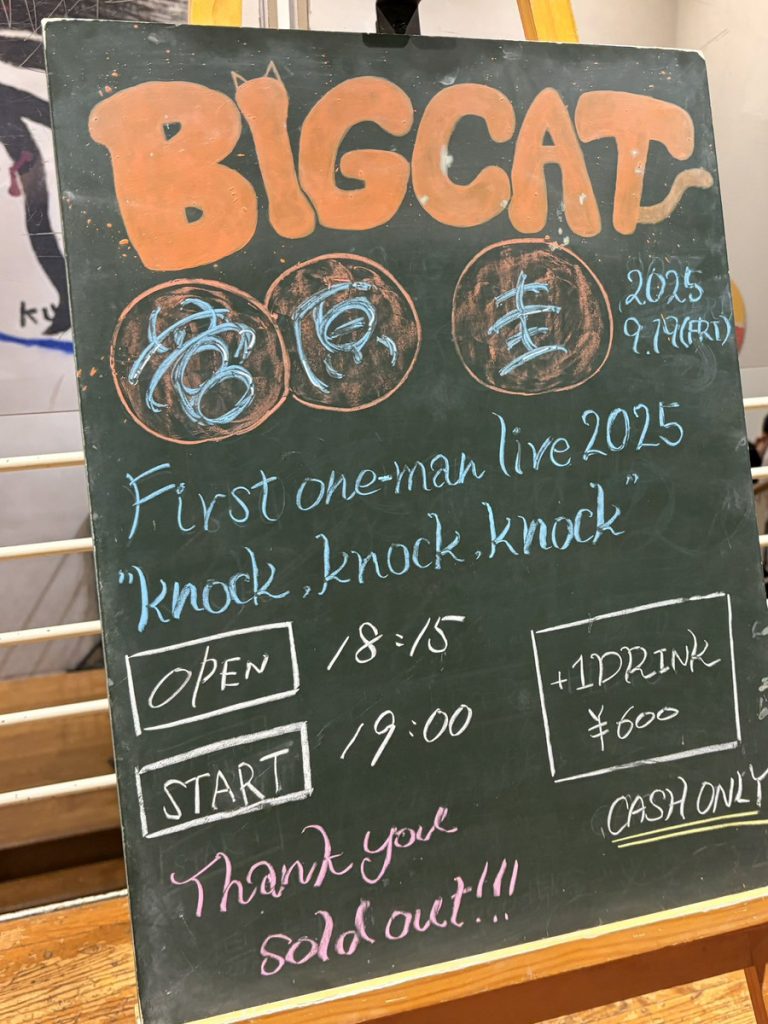 BIGCAT
菅原 圭
2025
9.19(FRI)
First one-man live 2025
"knock, knock, knock"
OPEN 18:15
START 19:00
+1DRINK
¥600
CASH ONLY
Thank you
sold out!!!